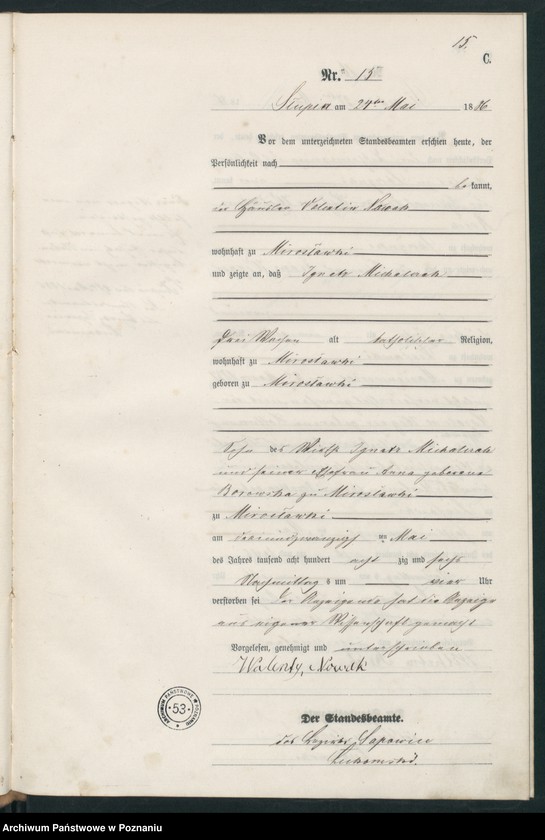 15.
C.
Nr. 15
Stupen am 24ten Mai 1886
Vor dem unterzeichneten Standesbeamten erschien heute, der
Persönlichkeit nach
bekannt,
der Häusler Valentin Nowak
wohnhaft zu Mirosławki
und zeigte an, daß Ignatz Michalczak
drei Wochen alt katholischer Religion,
wohnhaft zu Mirosławki
geboren zu Mirosławki
Sohn des Wirth Ignatz Michalczak
und seiner Ehefrau Anna geborene
Borowska zu Mirosławki
zu Mirosławki
am ten Mai
des Jahres tausend acht hundert acht zig und sechs
Nachmittags um vier Uhr
verstorben sei Der Anzeigende hat die Anzeige
aus eigener Wissenschaft gemacht
Vorgelesen, genehmigt und unterschrieben
Walenty, Nowak
Der Standesbeamte.
des Bezirks Sapowice
ARCHIWUM PAŃSTWOWE W POZNANIU
53
Archiwum Państwowe w Poznaniu